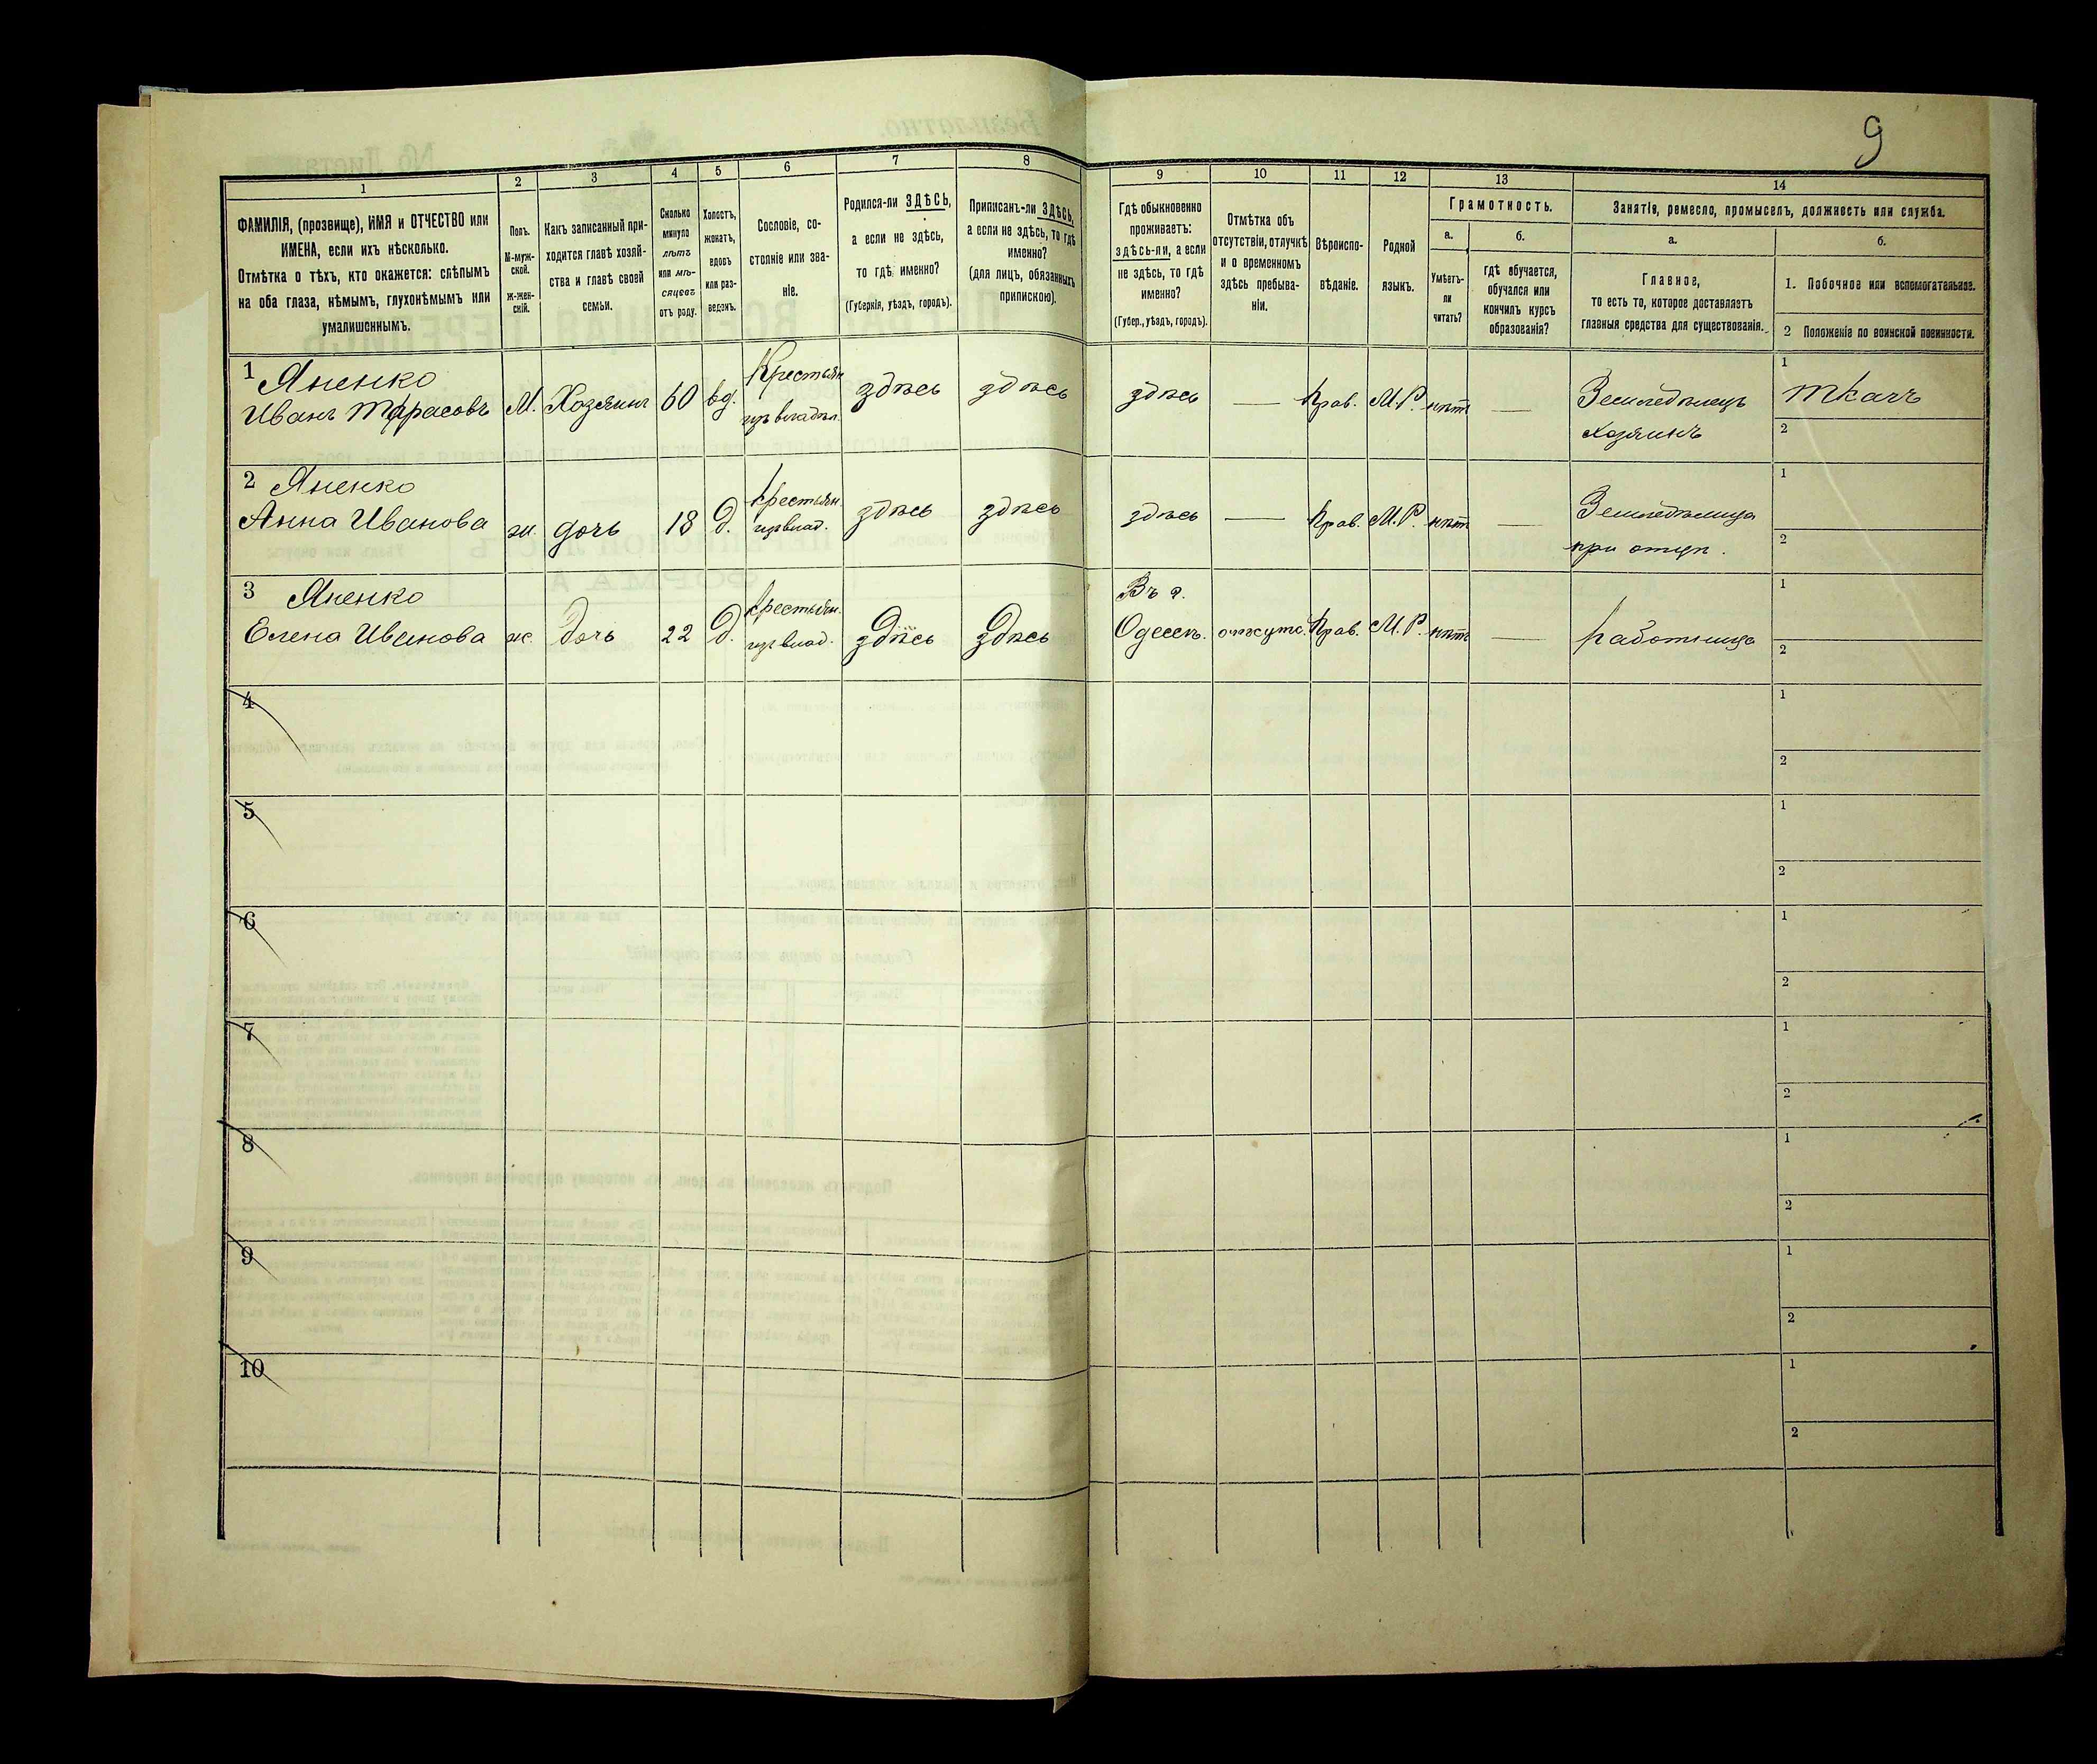 9
1
2
3
4
5
6
7
8
9
10
11
12
13
14
ФАМИЛІЯ, (прозвище), ИМЯ и ОТЧЕСТВО или
ИМЕНА, если ихъ нѣсколько.
Отмѣтка о тѣхъ, кто окажется: слѣпымъ
на оба глаза, нѣмымъ, глухонѣмымъ или
умалишеннымъ.
Полъ.
М-муж-
ской.
ж-жен-
скій.
Какъ записанный при-
ходится главѣ хозяй-
ства и главѣ своей
семьи.
Сколько
минуло
лѣтъ
или мѣ-
сяцевъ
отъ роду.
Холостъ,
женатъ,
вдовъ
или раз-
веденъ.
Сословіе, со-
стояніе или зва-
ніе.
Родился-ли ЗДѢСЬ,
а если не здѣсь,
то гдѣ именно?
(Губернія, уѣздъ, городъ).
Приписанъ-ли ЗДѢСЬ,
а если не здѣсь, то гдѣ
именно?
(для лицъ, обязанныхъ
припискою).
Гдѣ обыкновенно
проживаетъ:
здѣсь-ли, а если
не здѣсь, то гдѣ
именно?
(Губер., уѣздъ, городъ).
Отмѣтка объ
отсутствіи, отлучкѣ
и о временномъ
здѣсь пребыва-
ніи.
Вѣроиспо-
вѣданіе.
Родной
языкъ.
Грамотность.
а.
Умѣетъ-
ли
читать?
б.
гдѣ обучается,
обучался или
кончилъ курсъ
образованія?
Занятіе, ремесло, промыселъ, должность или служба.
а.
Главное,
то есть то, которое доставляетъ
главныя средства для существованія.
б.
1. Побочное или вспомогательное.
2 Положеніе по воинской повинности.
1 Яненко
Иванъ Тарасовъ М. Хозяинъ 60 вд. Крестьян. изъ владѣл. здѣсь здѣсь здѣсь — Прав. М.Р. нѣтъ — Земледѣлецъ
хозяинъ
1 Ткачъ
2
2 Яненко
Анна Иванова ж. дочь 18 д. Крестьян. изъ влад. здѣсь здѣсь здѣсь — Прав. М.Р. нѣтъ — Земледѣлица
при отцѣ.
1
2
3 Яненко
Елена Иванова ж. дочь 22 д. Крестьян. изъ влад. здѣсь здѣсь Въ г.
Одессѣ. отсутс. Прав. М.Р. нѣтъ — Работница
1
2
4
1
2
5
1
2
6
1
2
7
1
2
8
1
2
9
1
2
10
1
2